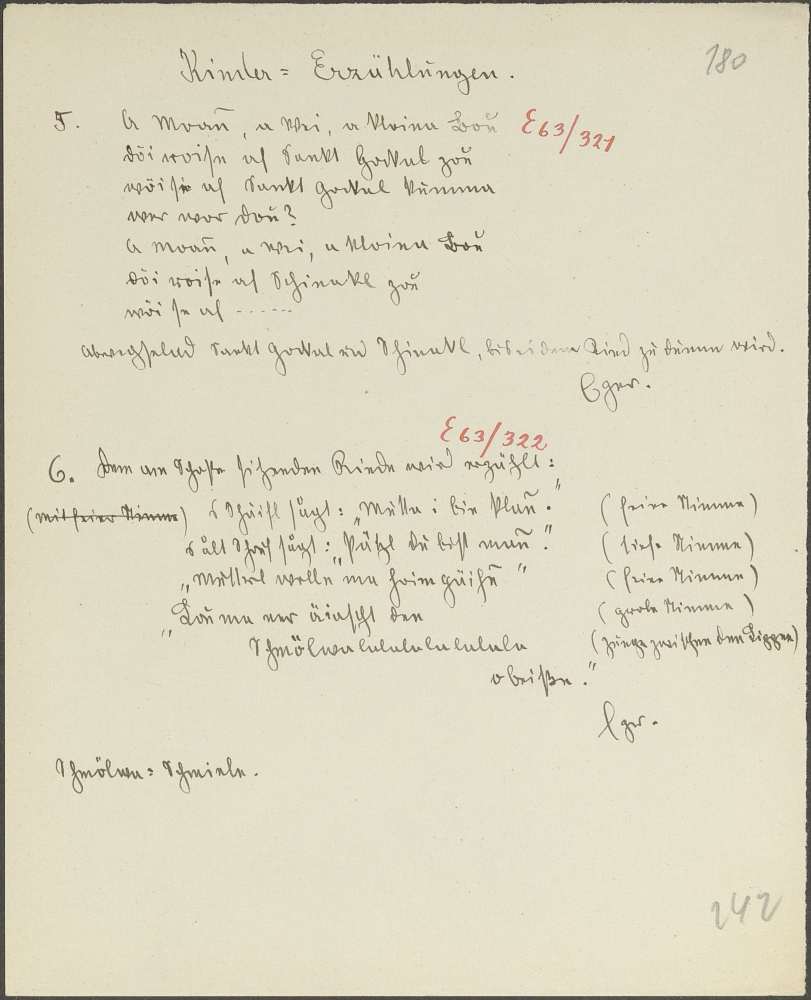 Kinder = Erzählungen.
180
5. A Moañ, a Wei, a kloina Boũ
E 63/321
döi roisn af Sankt Gockal zoũ
wöi se af Sankt Gockal kumma
wer wor doũ?
A Moañ, a Wei, a kloina Boũ
döi roisn af Schinakl zoũ
wöi se af ------
abwechselnd Sankt Gockal und Schinakl, bis es dem Kind zu dumm wird.
Eger.
E 63/322
6. Dem am Schoße sitzenden Kinde wird erzählt:
(mit feiner Stimme) s Schäifl sagt: „Mutta i bin klañ." (feine Stimme)
s alt Schouf sagt: „Pätzl du bist mañ." (tiefe Stimme)
„Mutterl welln ma hoimgäihñ" (feine Stimme)
„Lou ma ner äiascht den (grobe Stimme)
Schmölwalalalalalalala (Zunge zwischen den Lippen)
obeißn."
Eger.
Schmölwa = Schmiele.
242